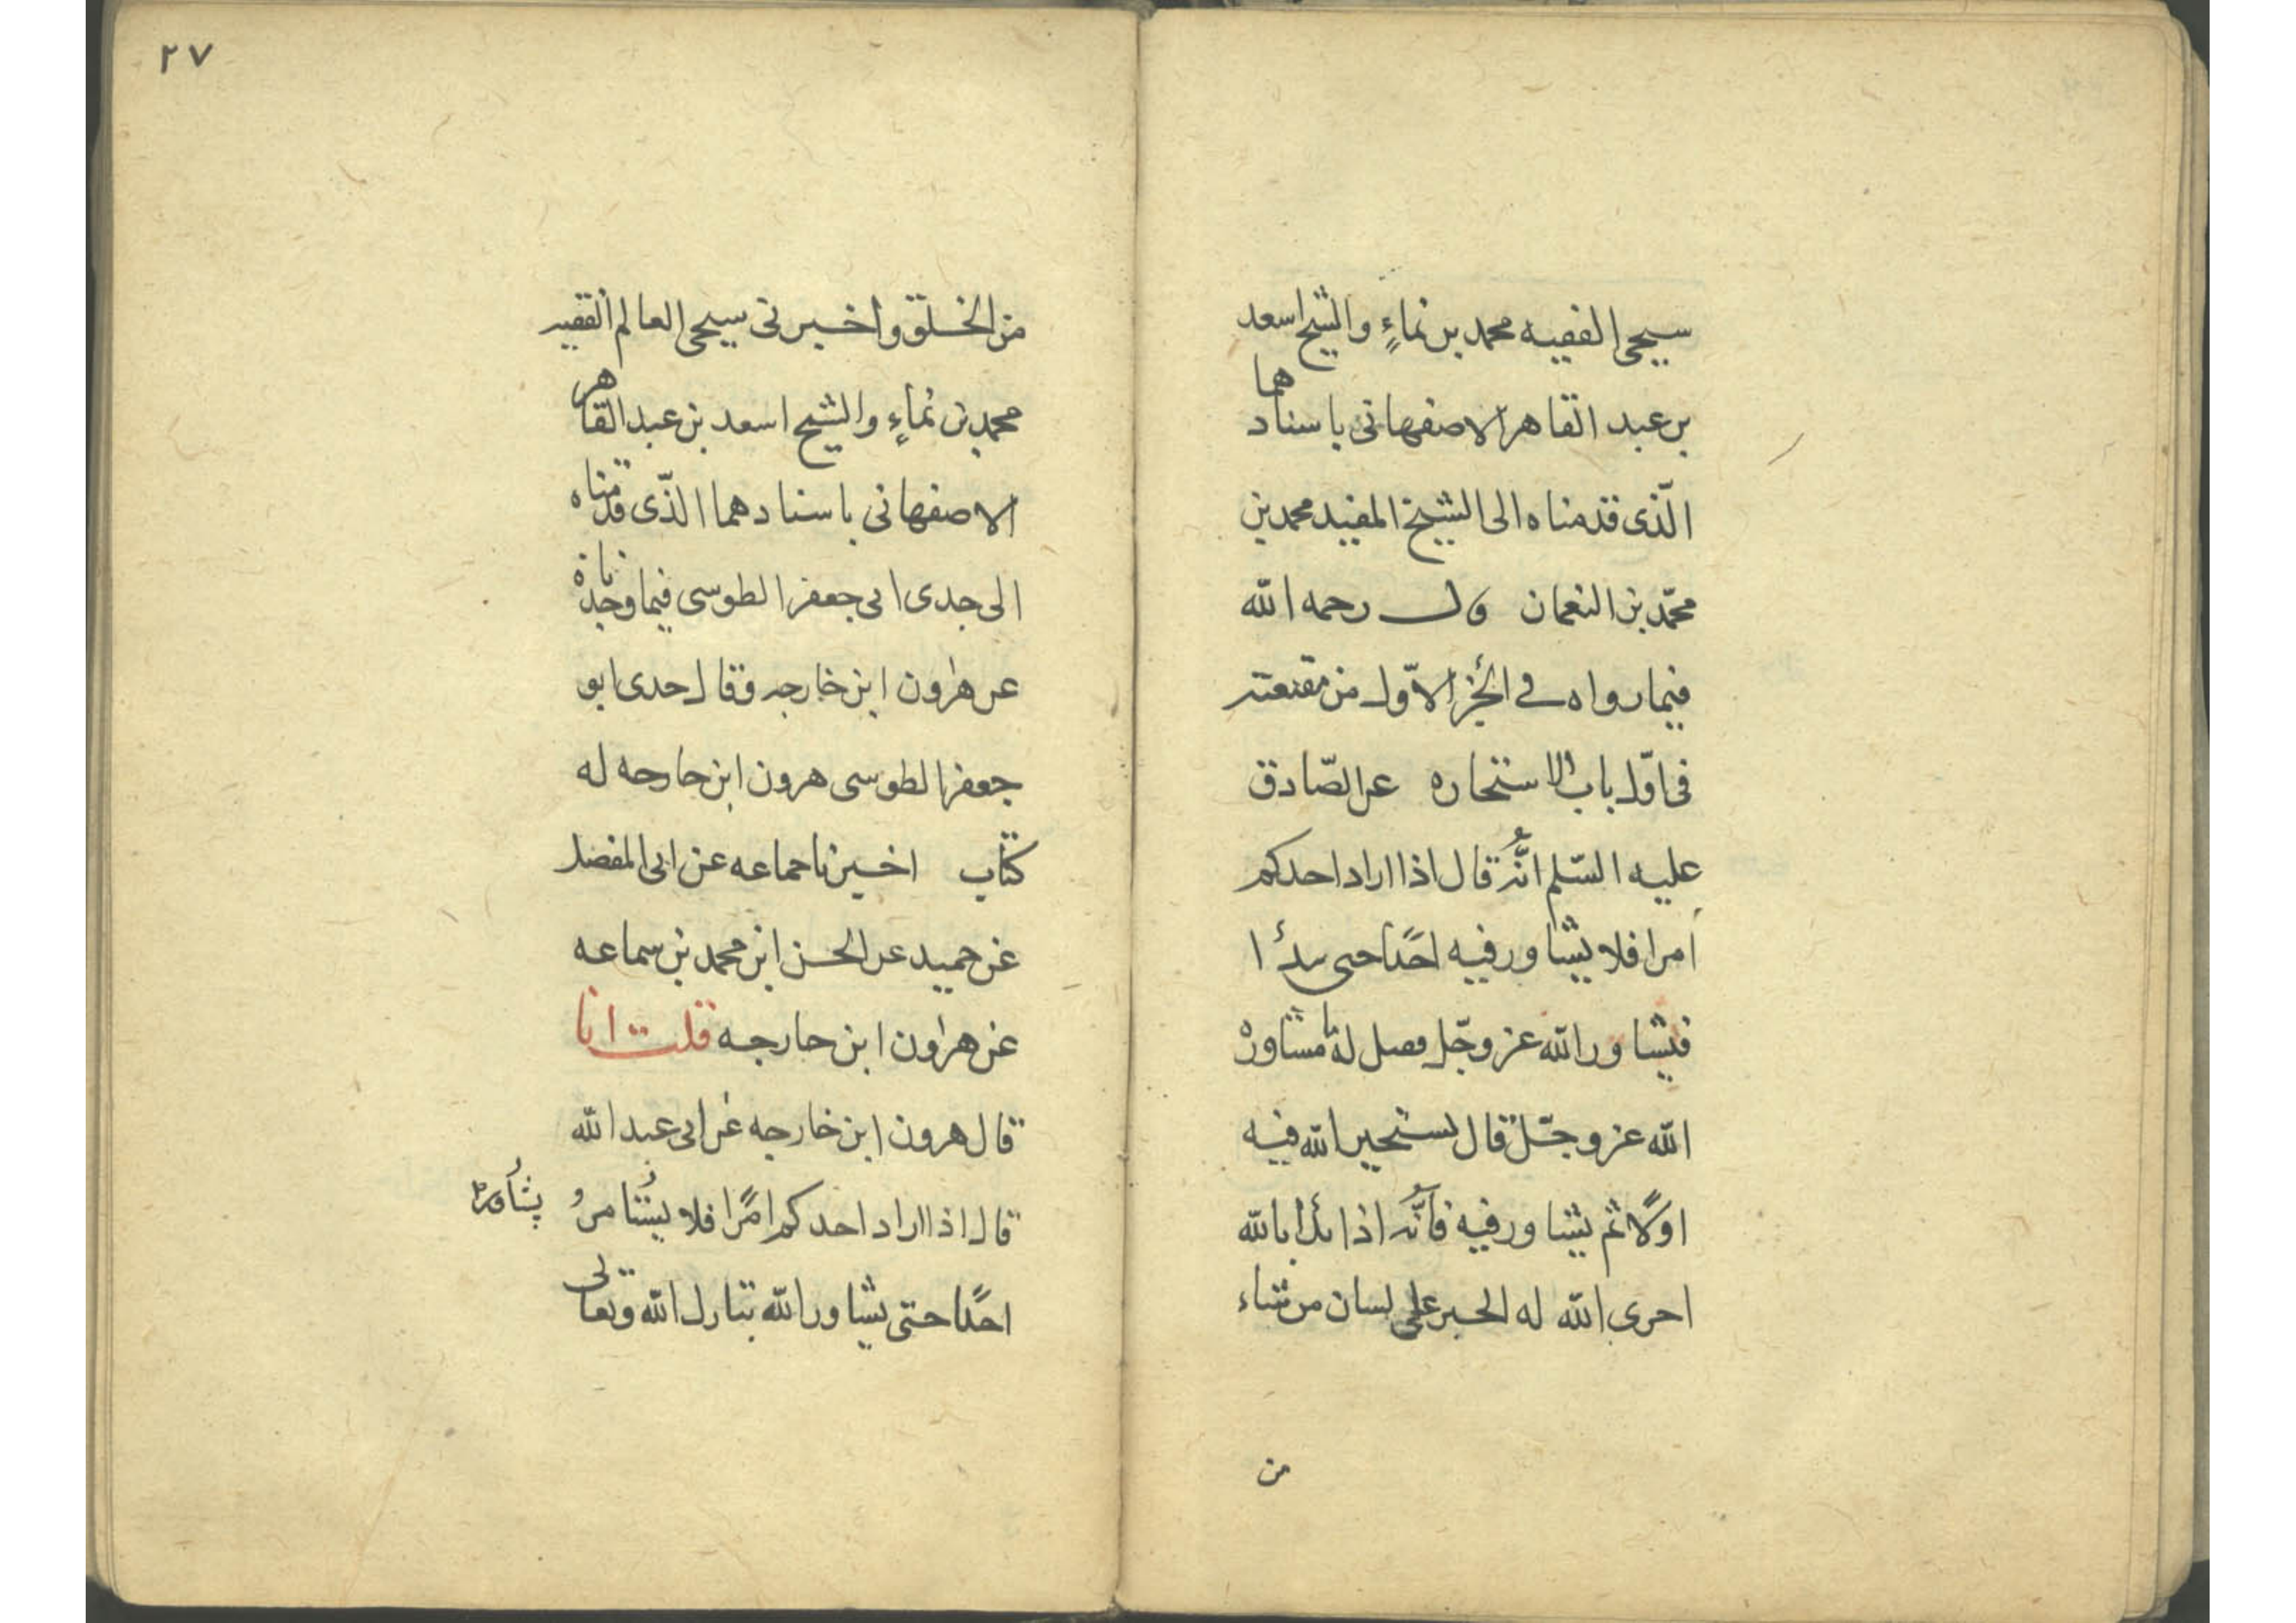 سيحى الفقيه محمد بن نماءٍ والشيخ اسعد
بن عبد القاهر الاصفهانى باسنادهما
الّذى قدمناه الى الشيخ المفيد محمد بن
محمّد بن النعمان قال رحمه الله
فيما رواه فى الجُزء الاوّل من مقنعته
فى اوّل باب الاستخاره عن الصّادق
عليه السّلم انَّهُ قال اذا اراد احدكم
امرا فلا يشاور فيه احدًا حتى يبدأ
فيشاور الله عز وجّل فقيل له ما مشاورة
الله عز وجّل قال يستخير الله فيه
اوّلا ثم يشاور فيه فانّه اذا بدأ بالله
اجرى الله له الخير على لسان من شاء
من
٢٧
من الخلق واخبرنى شيخى العالم الفقيه
محمد بن نماءٍ والشيخ اسعد بن عبد القاهر
الاصفهانى باسنادهما الذّى قدمناه
الى جدى ابى جعفر الطوسى فيما وجدناه
عن هرون ابن خارجه وقال جدى ابو
جعفر الطوسى هرون ابن خارجه له
كتاب اخبرنا جماعه عن ابى المفضل
عن حميد عن الحسن ابن محمد بن سماعه
عن هرون ابن خارجه قلت انا
قال هرون ابن خارجه عن ابى عبد الله
قال اذا اراد احدكم امرًا فلا يشامرُ
يشاور
احدًا حتى يشاور الله تبارك الله وتعالى